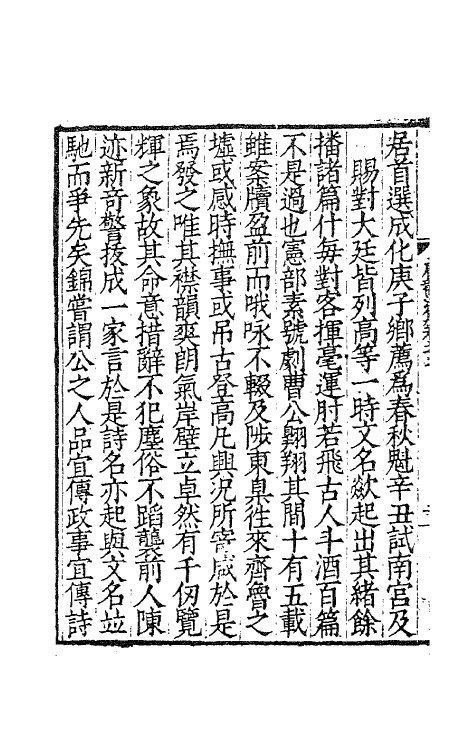 居首選成化庚子鄉薦爲春秋魁辛丑試南宮及
賜對大廷皆列高等一時文名欻起出其緒餘
播諸篇什每對客揮毫運肘若飛古人斗酒百篇
不是過也憲部素號劇曹公翺翔其間十有五載
雖案牘盈前而哦咏不輟及陟東臬徃來齊魯之
墟或感時撫事或吊古登高凢興況所寄咸於是
焉發之唯其襟韻爽朗氣岸壁立卓然有千仭覽
輝之象故其命意措辭不犯塵俗不蹈襲前人陳
迹新奇警拔成一家言於是詩名亦起與文名竝
馳而爭先矣錦嘗謂公之人品宜傳政事宜傳詩